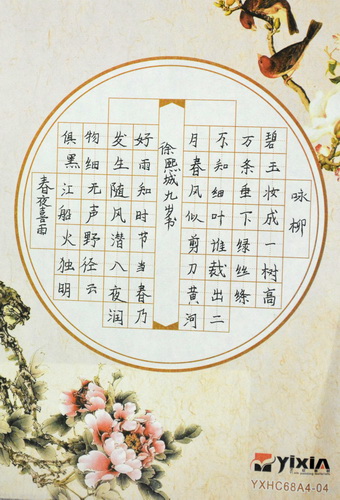 咏柳
碧玉妆成一树高
万条垂下绿丝绦
不知细叶谁裁出二
月春风似剪刀黄河
徐熙城九岁书
好雨知时节当春乃
发生随风潜入夜润
物细无声野径云
俱黑江船火独明
春夜喜雨
YiXiN
YXHC68A4-04